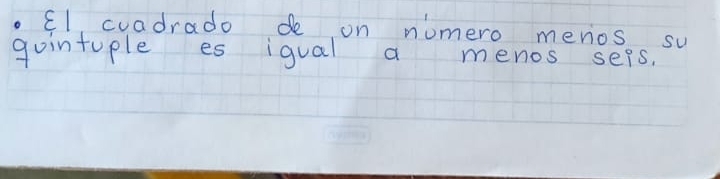 • El cuadrado de un número menos su
quíntuple es igual a menos seis.